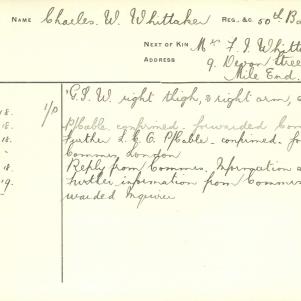 NAME Charles. W. Whittaker REG. &c. 50th Ba
NEXT OF KIN Mr F. J. Whitta
ADDRESS 9. Devon Stree
Mile End.
G.S.W. right thigh, & right arm,
18. P/Cable. confirmed. forwarded Com
18. further L. G. O. P/Cable. confirmed. fo
Commrs London
18. Reply from Commrs. Information a
19. further information from Commrs
warded Inquirer